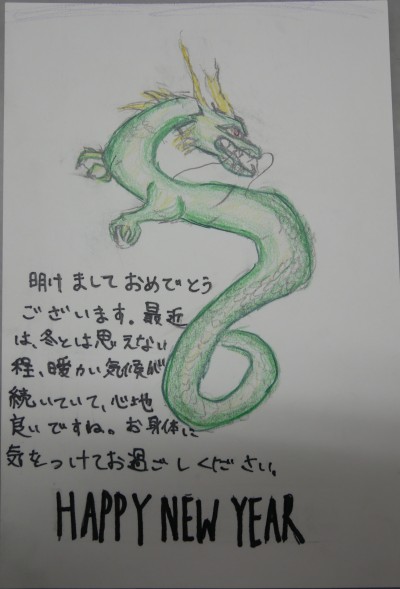 明けましておめでとう
ございます。最近
は、冬とは思えない
程、暖かい気候が
続いていて、心地
良いですね。お身体に
気をつけてお過ごしください。
HAPPY NEW YEAR